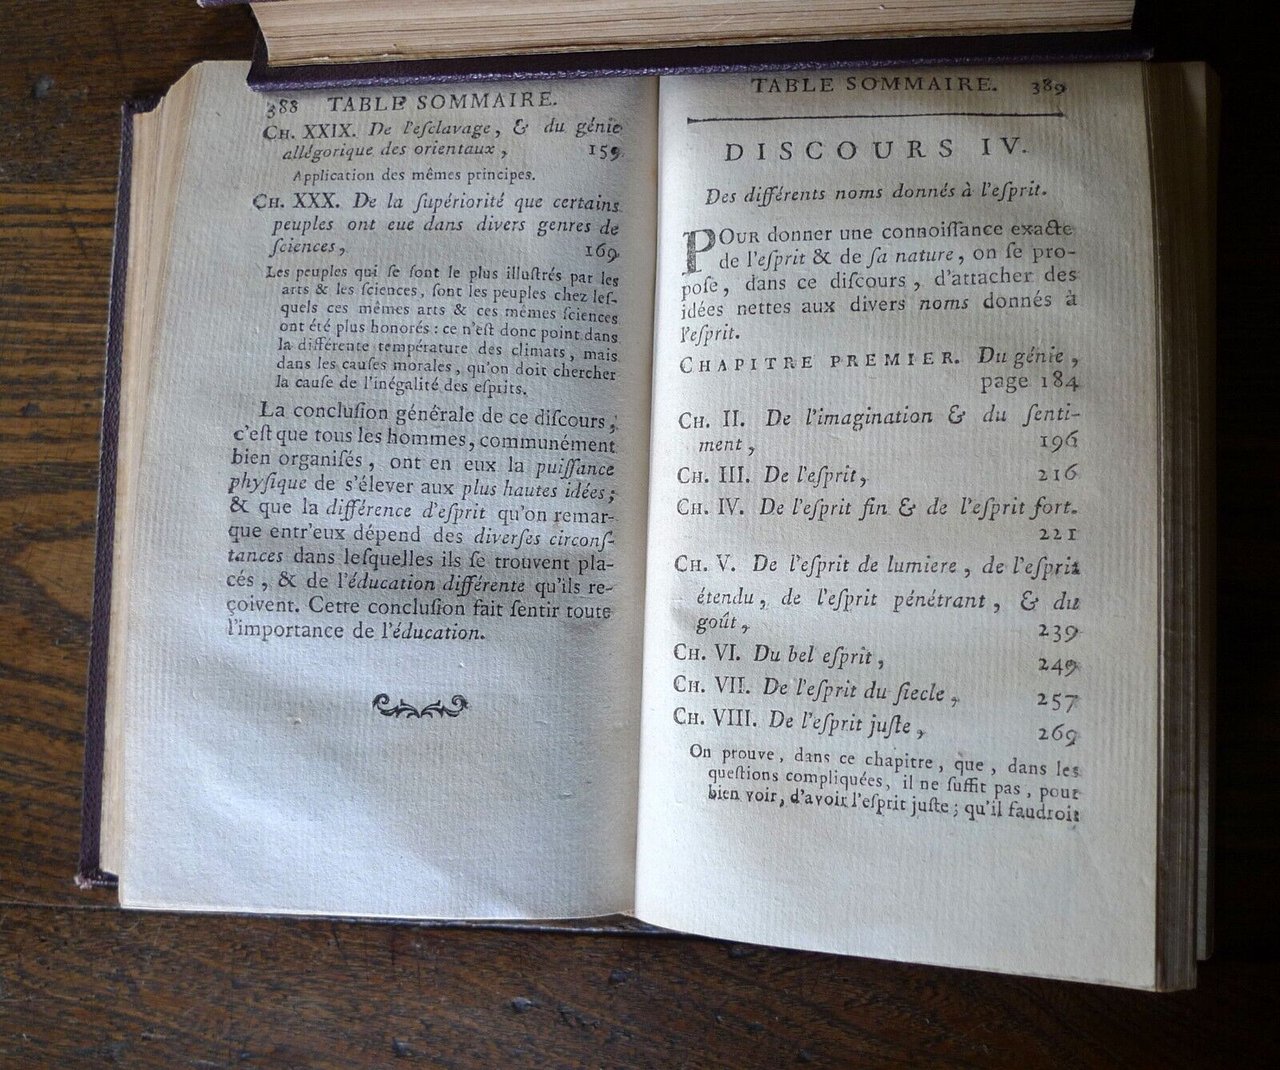 388 TABLE SOMMAIRE.
CH. XXIX. De l'eſclavage, & du génie
allégorique des orientaux, 159
Application des mêmes principes.
CH. XXX. De la ſupériorité que certains
peuples ont eue dans divers genres de
ſciences, 169
Les peuples qui ſe ſont le plus illuſtrés par les
arts & les ſciences, ſont les peuples chez leſ-
quels ces mêmes arts & ces mêmes ſciences
ont été plus honorés : ce n'eſt donc point dans
la différente température des climats, mais
dans les cauſes morales, qu'on doit chercher
la cauſe de l'inégalité des eſprits.
La concluſion générale de ce diſcours,
c'eſt que tous les hommes, communément
bien organiſés, ont en eux la puiſſance
phyſique de s'élever aux plus hautes idées ;
& que la différence d'eſprit qu'on remar-
que entr'eux dépend des diverſes circonſ-
tances dans leſquelles ils ſe trouvent pla-
cés, & de l'éducation différente qu'ils re-
çoivent. Cette concluſion fait ſentir toute
l'importance de l'éducation.
TABLE SOMMAIRE. 389
DISCOURS IV.
Des différents noms donnés à l'eſprit.
POUR donner une connoiſſance exacte
de l'eſprit & de ſa nature, on ſe pro-
poſe, dans ce diſcours, d'attacher des
idées nettes aux divers noms donnés à
l'eſprit.
CHAPITRE PREMIER. Du génie,
page 184
CH. II. De l'imagination & du ſenti-
ment, 196
CH. III. De l'eſprit, 216
CH. IV. De l'eſprit fin & de l'eſprit fort.
221
CH. V. De l'eſprit de lumiere, de l'eſprit
étendu, de l'eſprit pénétrant, & du
goût, 239
CH. VI. Du bel eſprit, 249
CH. VII. De l'eſprit du ſiecle, 257
CH. VIII. De l'eſprit juſte, 269
On prouve, dans ce chapitre, que, dans les
queſtions compliquées, il ne ſuffit pas, pour
bien voir, d'avoir l'eſprit juſte ; qu'il faudroit